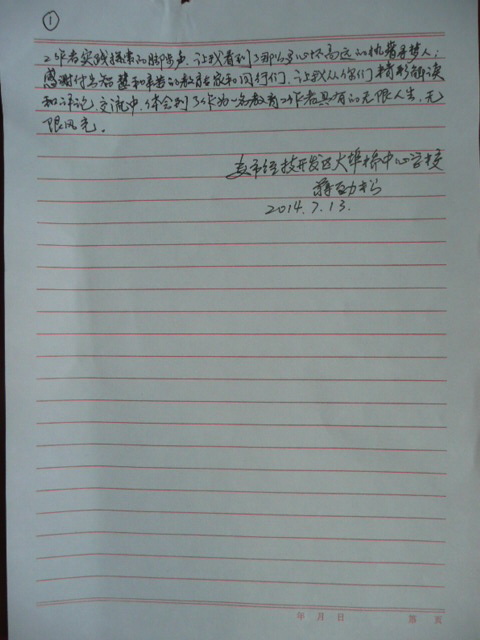 ①
工作者实践探索的脚步声，让我看到了那么多心怀高远的执着寻梦人；
感谢付出智慧和辛劳的教育专家和同行们，让我从你们精彩解读
和评论、交流中，体会到了作为一名教育工作者具有的无限人生，无
限风光。
经技开发区大埠桥中心学校
2014.7.13.
年 月 日 第 页